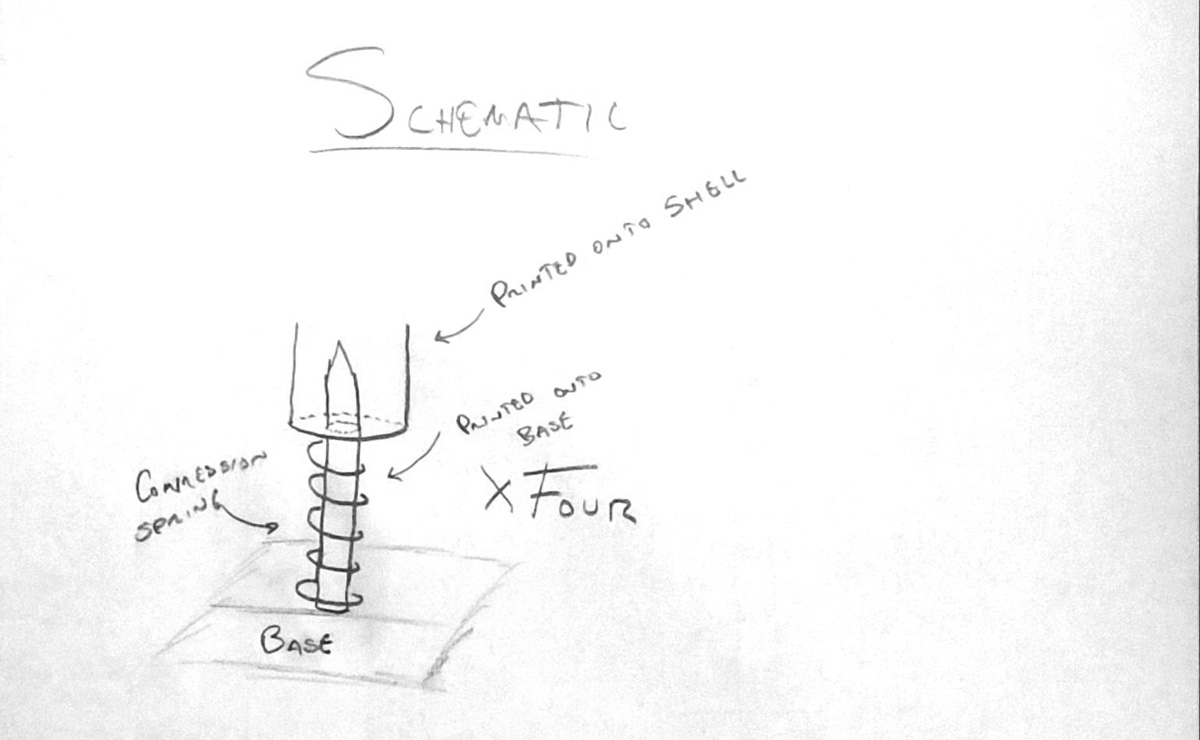 SCHEMATIC
PRINTED ONTO SHELL
PRINTED ONTO
BASE
X FOUR
COMPRESSION
SPRING
BASE